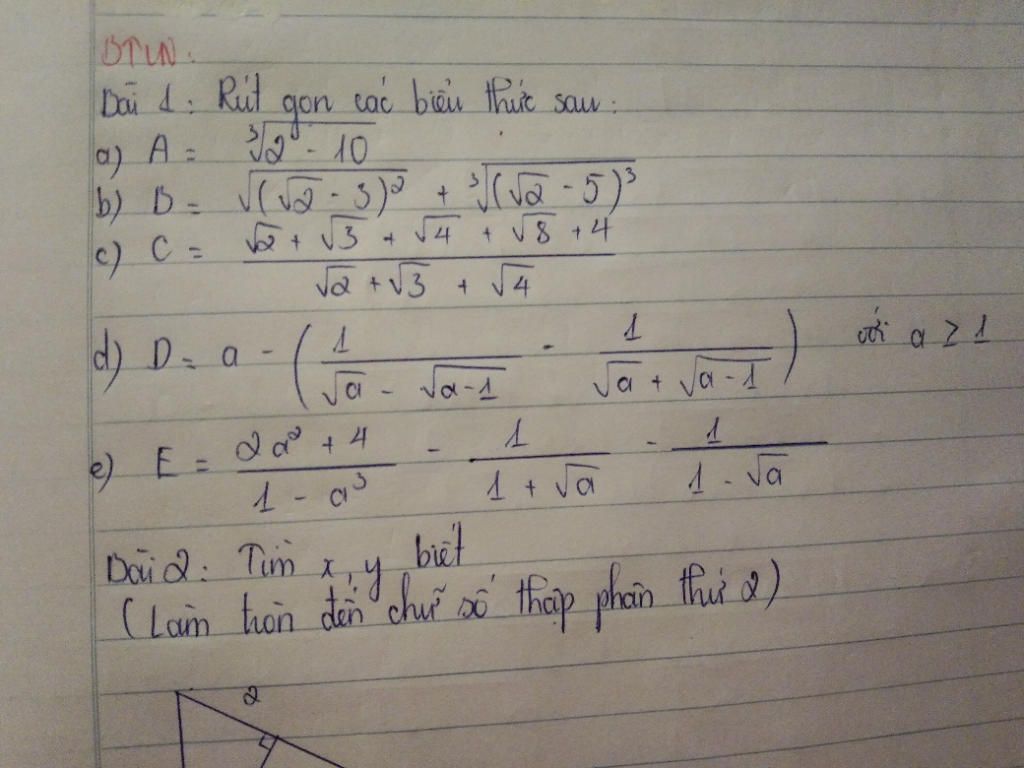 BTVN:
Bài 1: Rút gọn các biểu thức sau:
a) A = ∛(2⁰ - 10)
b) B = √((√2 - 3)²) + ∛((√2 - 5)³)
c) C = (√2 + √3 + √4 + √8 + 4) / (√2 + √3 + √4)
d) D = a - (1 / (√a - √(a-1)) - 1 / (√a + √(a-1))) với a ≥ 1
e) E = (2a² + 4) / (1 - a³) - 1 / (1 + √a) - 1 / (1 - √a)
Bài 2: Tìm x, y biết
(Làm tròn đến chữ số thập phân thứ 2)
2